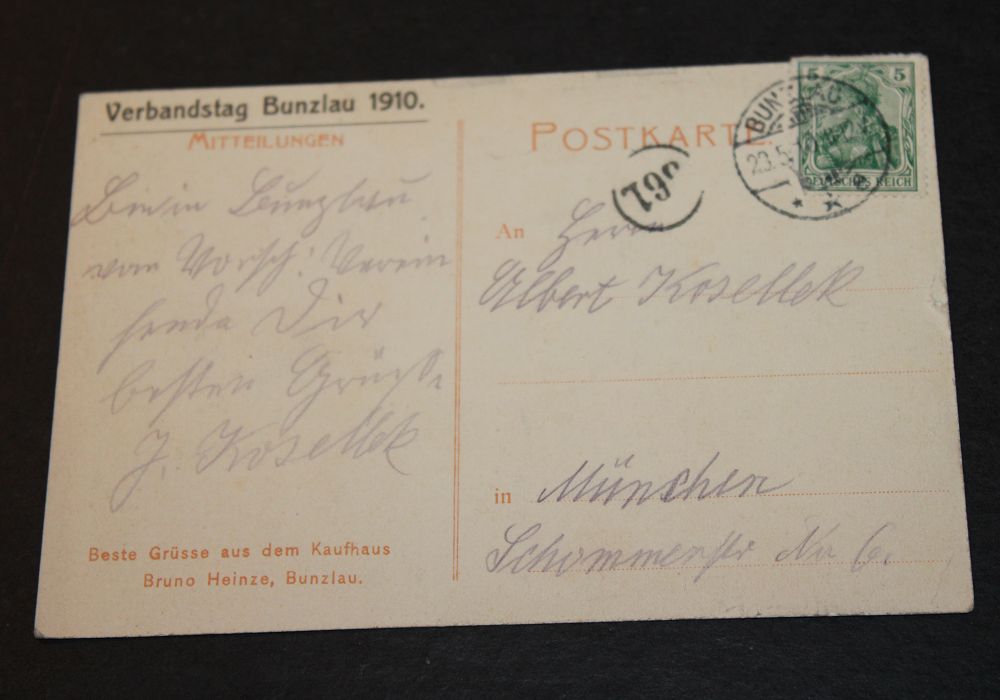 Verbandstag Bunzlau 1910.
MITTEILUNGEN
Bin in Bunzlau
vom Vorsch: Verein
sende Dir
besten Grüße
J. Kosellek
Beste Grüsse aus dem Kaufhaus
Bruno Heinze, Bunzlau.
POSTKARTE.
5 5
DEUTSCHES REICH
BUNZLAU
23.5.10
361
An Herrn
Albert Kosellek
in München
No 6.